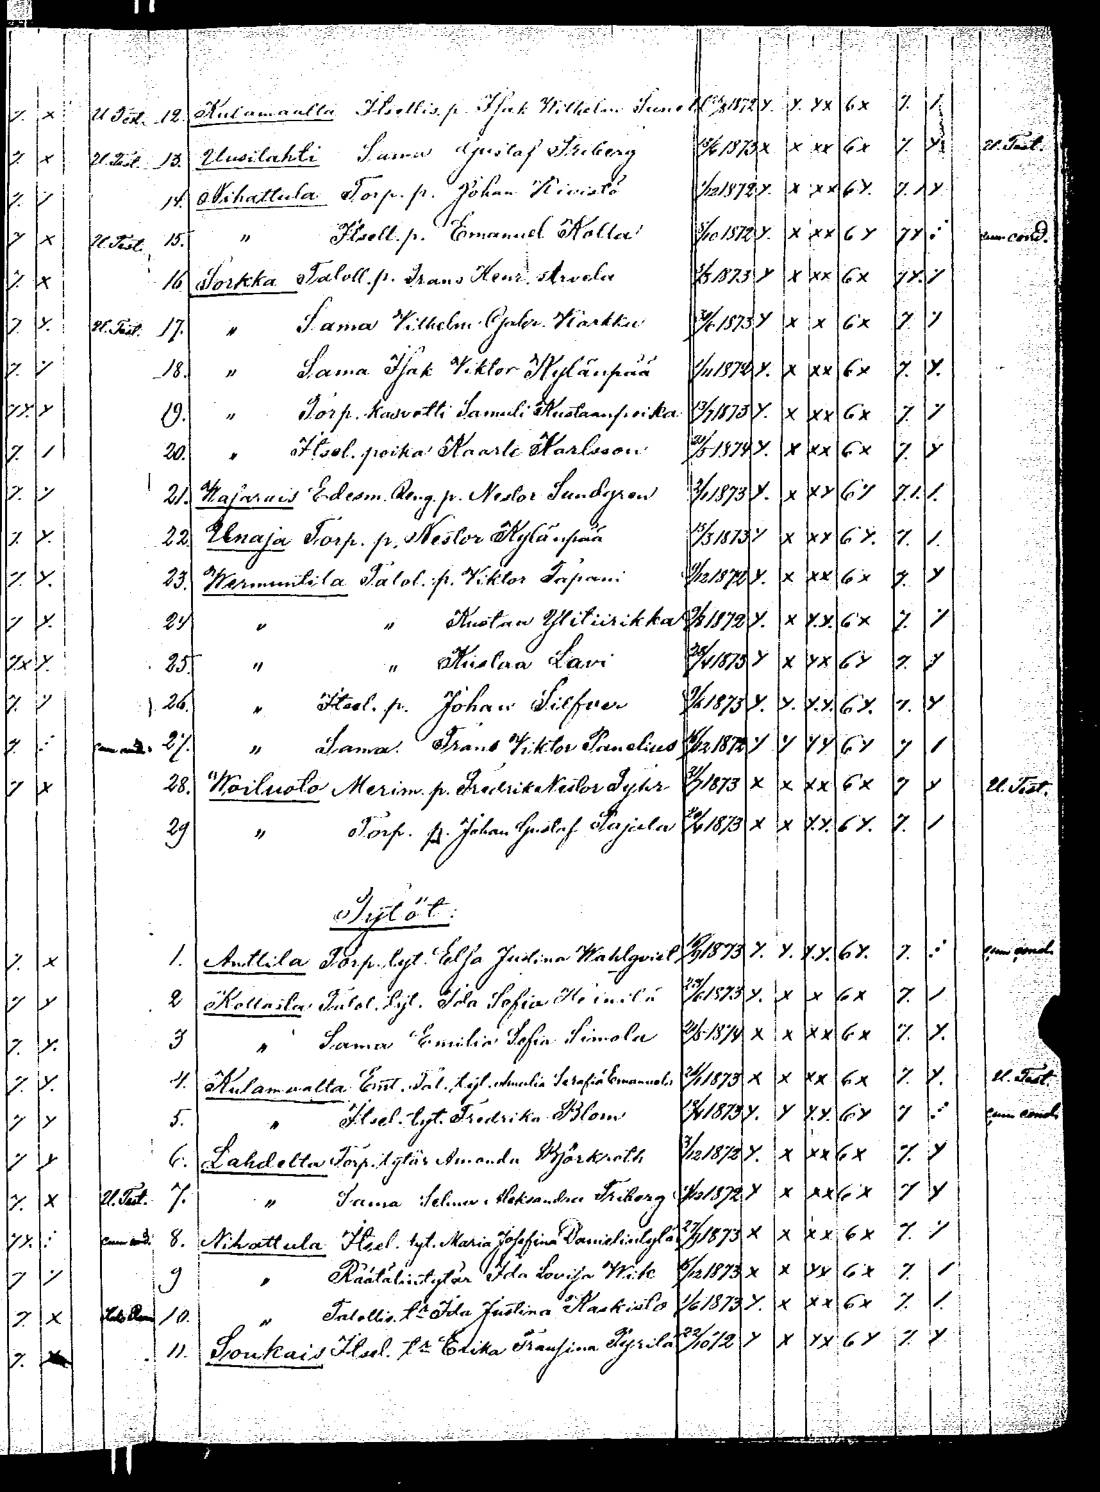 7. x U. Test. 12. Kulamaalta Itsellis. p. Isak Wilhelm 1872 y. y. yx 6x 7. 1.
7. x U. Test. 13. Uusilahti Sama Gustaf Friberg 1873 x x xx 6x 7. y. U. Test.
7. y 14. Nihattula Torp. p. Johan Kivistö 1/12 1872 y. x xx 6y. 7. 1 y
7 x U. Test. 15. " Itsell. p. Emanuel Kolla 1872 y. x xx 6y 7y : cum cond.
7. x 16 Sorkka Taloll. p. Frans Henr. Arvela 1873 y x xx 6x 7y. y
7. y. U. Test. 17. " Sama Vilhelm Gabr. Karkku 1873 y x x 6x 7. y
7. y 18. " Sama Isak Viktor Kylänpää 1872 y. x xx 6x 7. y.
7y. y 19. " Torp. kasvatti Samuli Kustaanpoika 13/7 1873 y. x xx 6x 7. y
7. 1 20. " Itsel. poika Kaarle Karlsson 1874 y. x xx 6x 7. y
7. y 21. Edesm. Reng. p. Nestor Sundgren 1873 y. x xy 6y 7.1. 1.
7. y. 22. Unaja Torp. p. Nestor Kylänpää 13/3 1873 y x xx 6y. 7. 1.
7. y. 23. Wermuntila Talol. p. Viktor Tapani 1872 y. x xx 6x 7. y
7 y. 24 " " Kustaa Ylitiirikka 1872 y. x y.y. 6x 7. y
7x y. 25. " " Kustaa Lavi 1873 y x yx 6y 7. y
7. y 26. " Itsel. p. Johan Silfver 1873 y. y. y.y. 6y. 7. y
7. : cum cond. 27. " Sama. Frans Viktor Panelius 1872 y y yy 6y 7 1
7 x 28. Woiluoto Merim. p. Fredrik Nestor Fyhr 1873 x x xx 6x 7 y U. Test.
29 " Torp. p. Johan Gustaf Pajula 1873 x x y.y. 6y. 7. 1
Tytöt:
7. x 1. Anttila Torp. tyt. Elsa Justina Wahlqvist 1873 y. y. y.y. 6y. 7. : cum cond.
7 y 2 Kollasla Talol. tyt. Ida Sofia Heinilä 1873 y. x x 6x 7. 1
7. y. 3 " Sama Emilia Sofia Simola 1874 x x xx 6x 7. y.
7. y. 4. Kulamaalta Em̅t. Tal. tyt. Amalia Serafia 1873 x x xx 6x 7. y. U. Test.
7 y 5. " Itsel. tyt. Fredrika Blom 1873 y. y y.y. 6y 7 : cum cond.
7 y 6. Lahdelta Torp. tytär Amanda Björkroth 3/12 1872 y. x xx 6x 7. y
7. x U. Test. 7. " Sama Selma Aleksandra Friberg 1872 y x xx 6x 7 y
7y. : cum cond. 8. Nihattula Itsel. tyt. Maria Josefina Danielintytär 1873 x x xx 6x 7. y
7 y 9 " Räätälintytär Ida Lovisa Wik 1873 x x yy 6x 7. 1
7. x 10. " Talollis. tr Ida Justina Kaskisto 1/6 1873 y. x xx 6x 7. 1.
7. 11. Soukais Itsel. tr Erika Fransina Pyrilä 22/10 72 y x yx 6y 7. y